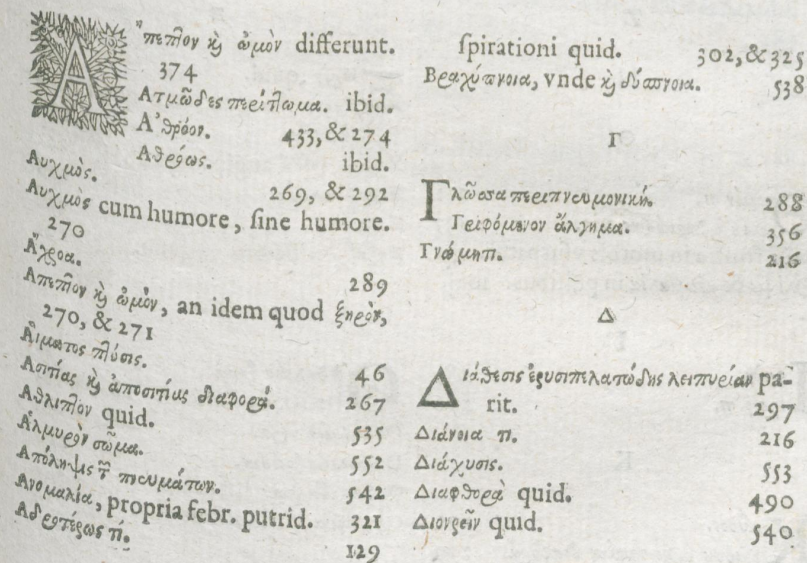 Ἄπεπτον καὶ ὠμὸν differunt.
374
Ατμῶδες περίττωμα. ibid.
Α᾿θρόον. 433, & 274
Αθρόως. ibid.
Αυχμὸς. 269, & 292
Αυχμὸς cum humore, sine humore.
270
Ἄχροα. 289
Απεπτον καὶ ὠμὸν, an idem quod ξηρὸν,
270, & 271
Αἵματος πτύσις. 46
Ασιτίας καὶ ἀποσιτίας διαφορά. 267
Αθλιπτον quid. 535
Ἁλμυρὸν σῶμα. 552
Απόληψις τῶν πνευμάτων. 542
Ανομαλία, propria febr. putrid. 321
Αδροτέρως τί. 129
spirationi quid. 302, & 325
Βραχύπνοια, vnde καὶ δύσπνοια. 538
Γ
Γλῶσσα περιπνευμονική. 288
Γριφόμενον ἄλγημα. 356
Γνώμη τι. 216
Δ
Διάθεσις ἐρυσιπελατώδης λειπυρίαν pa-
rit. 297
Διάνοια τι. 216
Διάχυσις. 553
Διαφθορὰ quid. 490
Διουρεῖν quid. 540